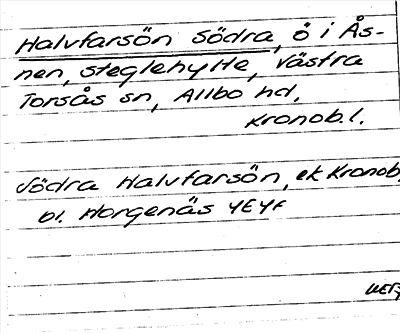 Halvfarsön Södra, ö i Ås-
nen, Steglehylte, Västra
Torsås sn, Allbo hd.
Kronob.l.
Södra Halvfarsön, ek Kronob.
bl. Horgenäs 4E4f